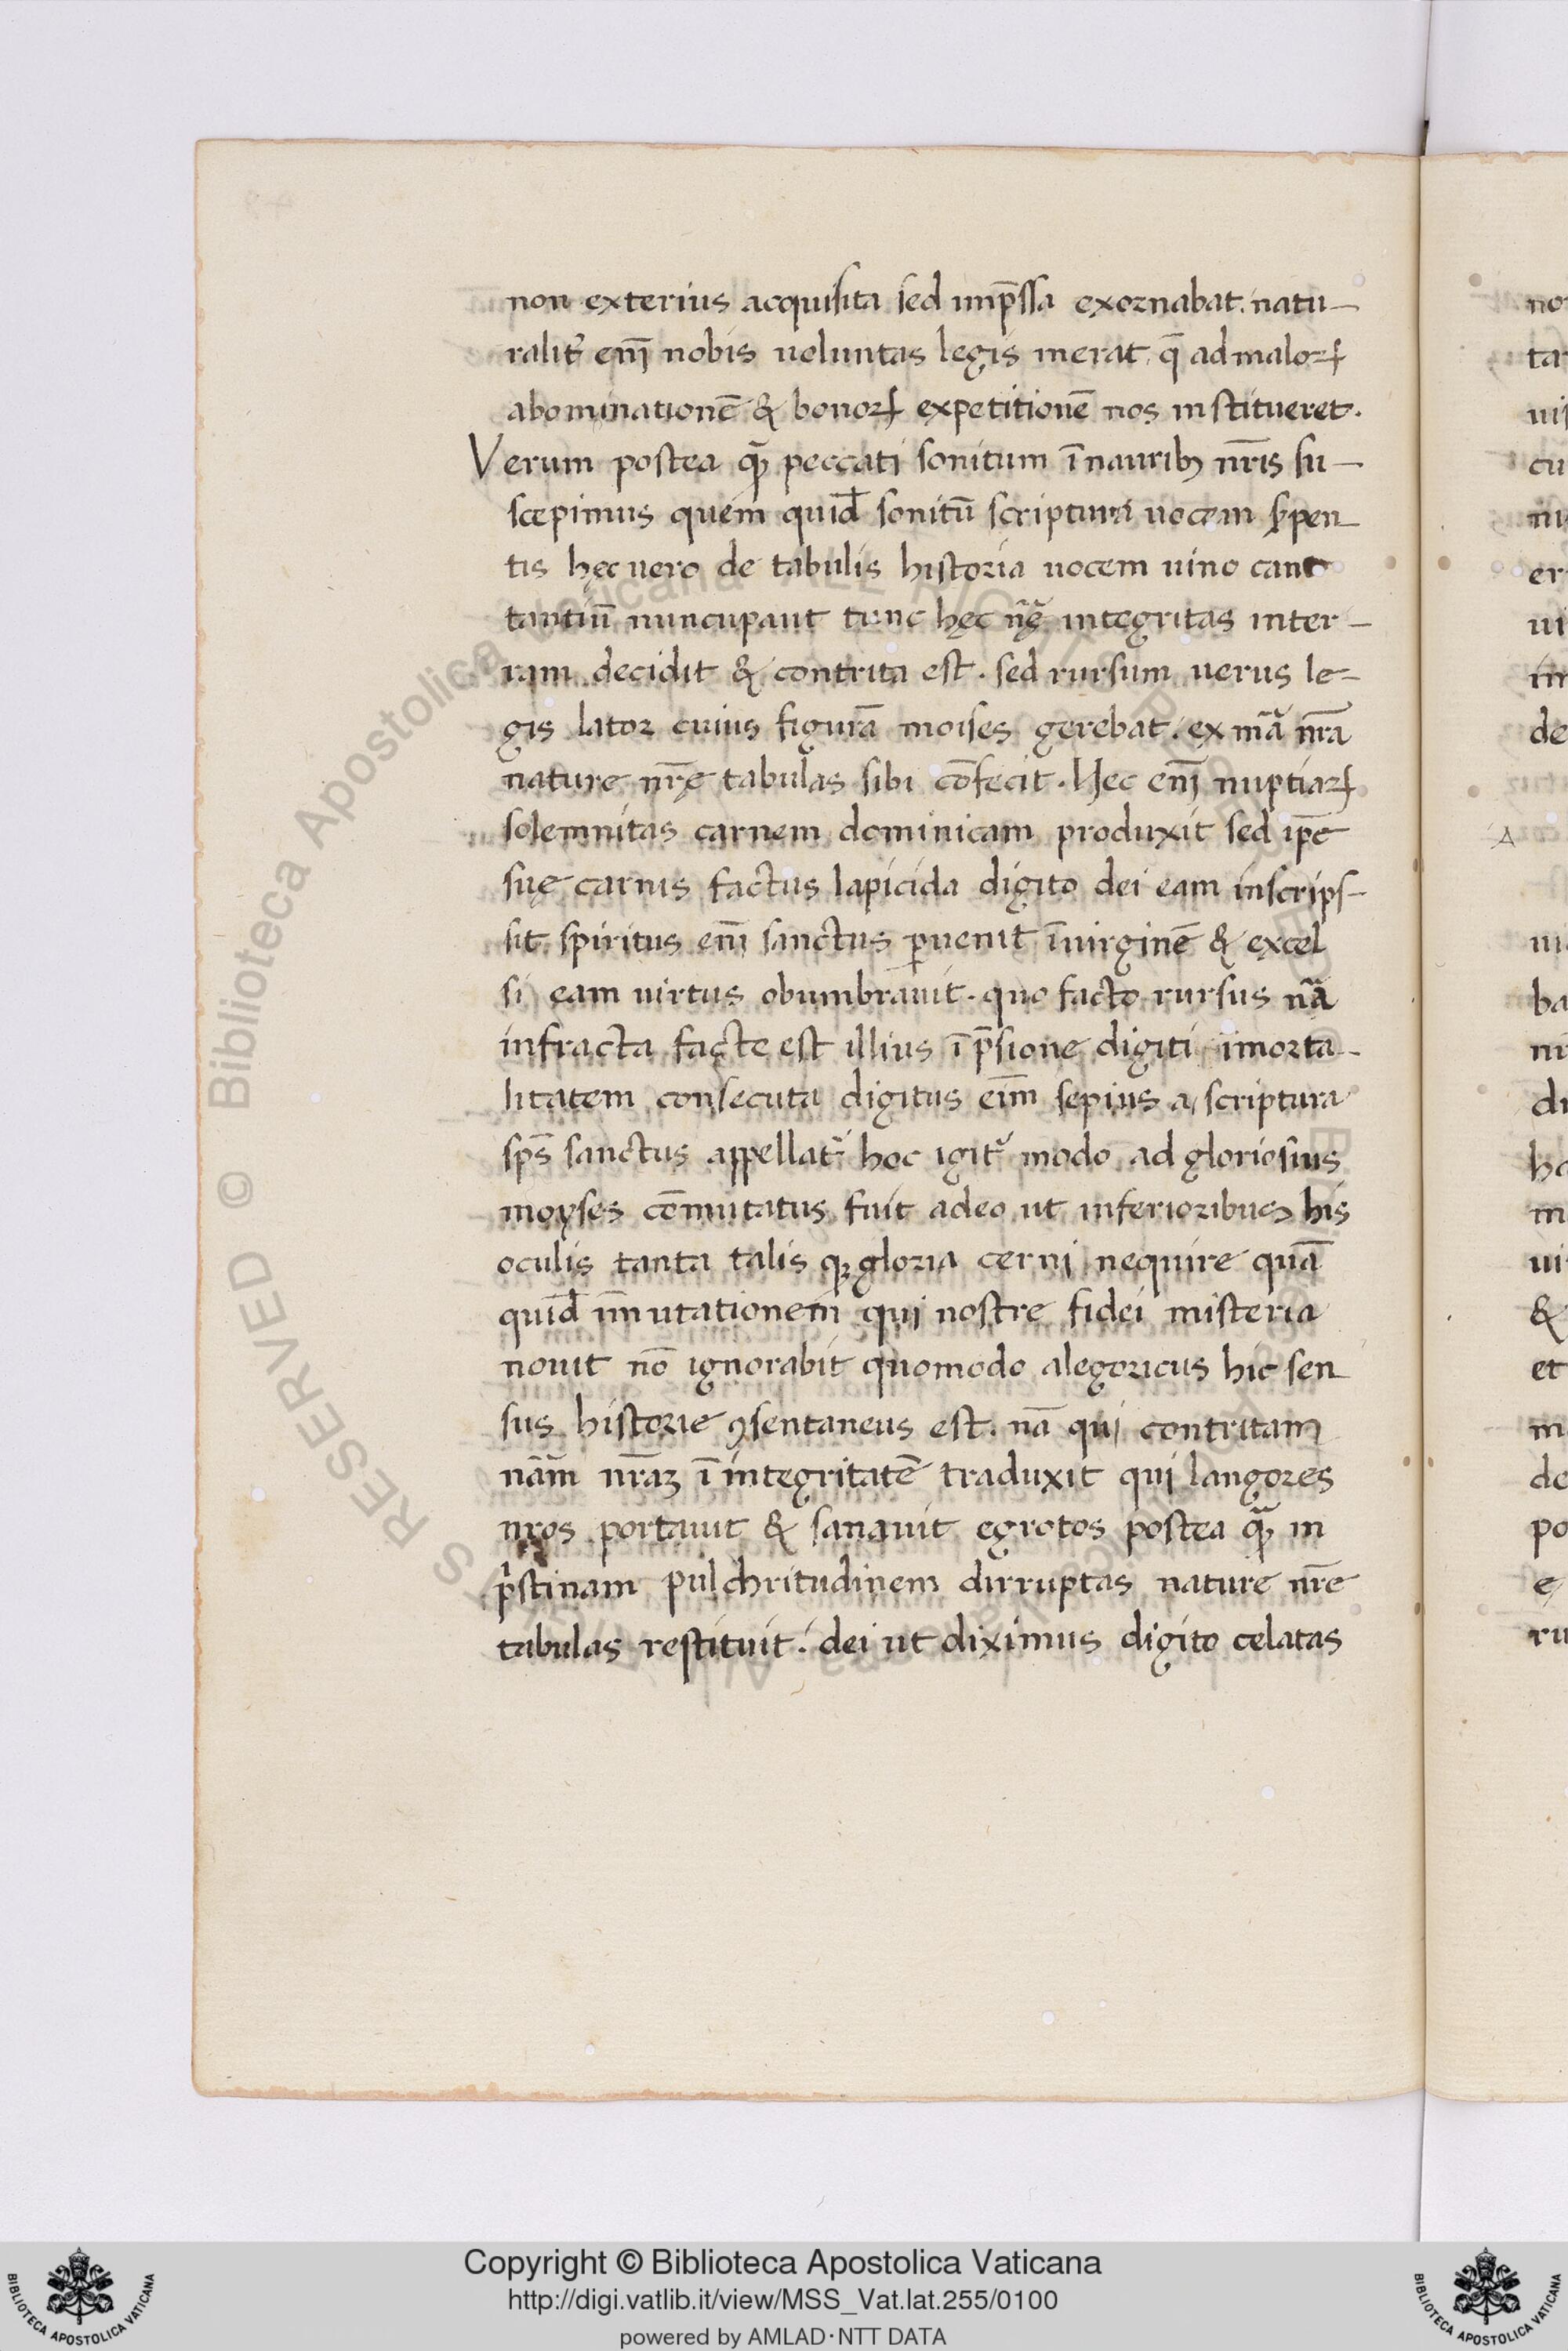 non exterius acquisita sed imp̄ssa exornabat. natu-
ralit̉ em̄ nobis voluntas legis inerat. q̄ ad maloꝝ
abominationē & bonoꝝ expetitionē nos institueret.
Verum postea q̄ꝫ peccati sonitum ī nauribꝫ nr̄is su-
scepimus quem quid̄ sonitū scriptura vocem s̄pen
tis hęc vero de tabulis historia vocem vino cant
tantiū nuncupant tunc hęc nr̄ę integritas inter-
ram decidit & contrita est. sed rursum verus le-
gis lator cuius figurā moises gerebat. ex mā nr̄a
nature nr̄ę tabulas sibi cōfecit. Hec em̄ nuptiaꝝ
solemnitas carnem dominicam produxit sed ip̄e
suę carnis factus lapicida digito dei eam inscrips-
sit. spiritus em̄ sanctus ꝑvenit ī virginē & excel
si eam virtus obumbravit. quo facto rursus nā
infracta facte est illius ī p̄sione digiti īmorta-
litatem consecuta digitus eīm sepius a scriptura
sp̄s sanctus appellat̉ hoc igit̉ modo ad gloriosius
moyses cōmutatus fuit adeo ut inferioribus his
oculis tanta talis qꝫ gloria cerni nequire quā
quid̄ īmutationem qui nostre fidei misteria
novit nō ignorabit quomodo alegoricus hic sen
sus historie ꝯsentaneus est. nā qui contritam
nām nr̄aꝫ ī integritatē traduxit qui langores
nros portavit & sanavit egrotos postea q̄ꝫ in
p̉stinam pulchritudinem dirruptas nature nr̄e
tabulas restituit. dei ut diximus digito celatas
Copyright © Biblioteca Apostolica Vaticana
http://digi.vatlib.it/view/MSS_Vat.lat.255/0100
powered by AMLAD·NTT DATA